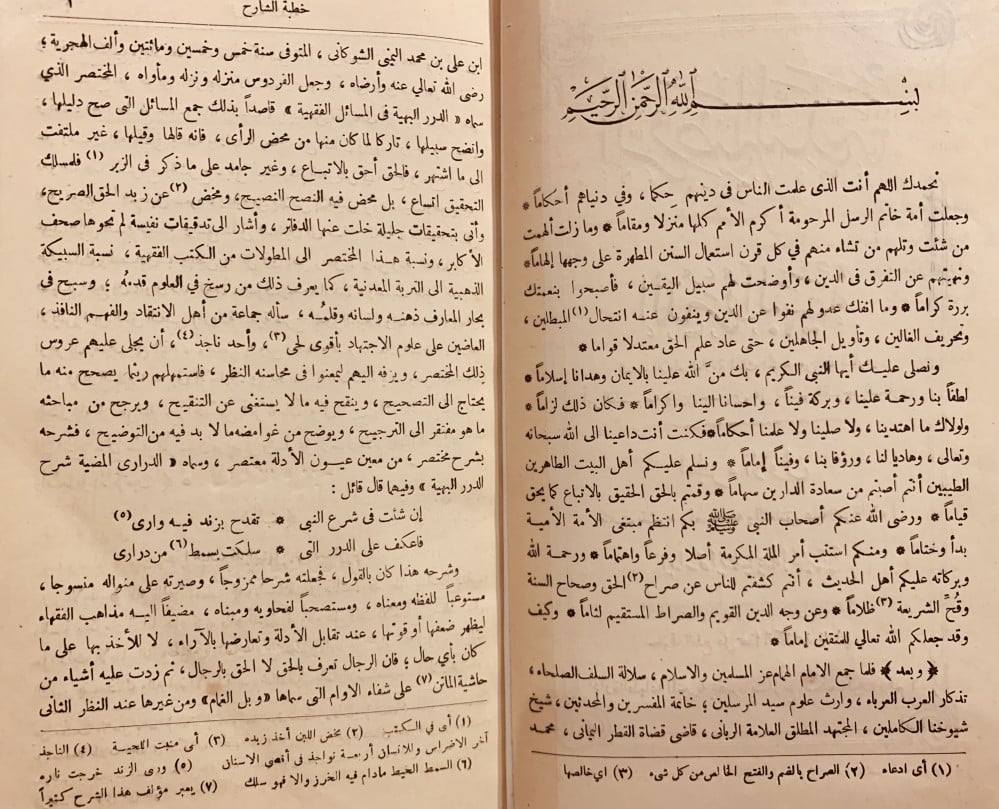 بسم الله الرحمن الرحيم
نحمدك اللهم أنت الذى علمت الناس فى دينهم حِكما ، وفي دنياهم أحكاماً *
وجعلت أمة خاتم الرسل المرحومة أكرم الأمم كلها منزلا ومقاماً * وما زلت ألهمت
من شئت وتلهم من تشاء منهم في كل قرن استعمال السنن المطهرة على وجهها إلهاماً *
ونهيتهم عن التفرق فى الدين ، وأوضحت لهم سبيل اليقين ، فأصبحوا بنعمتك
بررة كراماً * وما انفك عدو لهم نفوا عن الدين وينفون عنه انتحال (١) المبطلين ،
وتحريف الغالين ، وتأويل الجاهلين ، حتى عاد علم الحق معتدلا قواما *
ونصلى عليك أيها النبى الكريم ، بك منَّ الله علينا بالايمان وهدانا إسلاماً *
لطفاً بنا ورحمة علينا ، وبركة فيناً ، واحسانا الينا واكراماً * فكان ذلك لزاماً *
ولولاك ما اهتدينا ، ولا صلينا ولا علمنا أحكاماً * فكنت أنت داعينا الى الله سبحانه
وتعالى ، وهاديا لنا ، ورؤفا بنا ، وفيناً إماماً * ونسلم عليكم أهل البيت الطاهرين
الطيبين أنتم أصبتم من سعادة الدارين سهاماً * وقمتم بالحق الحقيق بالاتباع كما يحق
قياماً * ورضى الله عنكم أصحاب النبى ﷺ بكم انتظم مبتغى الأمة الأمية
بدأ وختاماً * ومنكم استتب أمر الملة المكرمة أصلا وفرعاً واهتماماً * ورحمة الله
وبركاته عليكم أهل الحديث ، أنتم كشفتم للناس عن صراح (٢) الحق وصحاح السنة
وقُحِّ الشريعة (٣) ظلاماً * وعن وجه الدين القويم والصراط المستقيم لثاماً * وكيف
وقد جعلكم الله تعالي للمتقين إماماً *
﴿ وبعد ﴾ فلما جمع الامام الهمام عز المسلمين والاسلام ، سلالة السلف الصلحاء ،
تذكار العرب العرباء ، وارث علوم سيد المرسلين ؛ خاتمة المفسرين والمحدثين ، شيخ
شيوخنا الكاملين ، المجتهد المطلق العلامة الربانى ، قاضى قضاة القطر اليمانى ، محمد
(١) أى ادعاء (٢) الصراح بالضم والفتح الخالص من كل شىء (٣) اي خالصها
خطبة الشارح
ابن على بن محمد اليمنى الشوكانى ، المتوفى سنة خمس وخمسين ومائتين وألف الهجرية ؛
رضى الله تعالي عنه وأرضاه ، وجعل الفردوس منزله ونزله ومأواه ، المختصر الذي
سماه « الدرر البهية فى المسائل الفقهية » قاصداً بذلك جمع المسائل التى صح دليلها ،
واتضح سبيلها ، تاركا لما كان منها من محض الرأى ، فانه قالها وقيلها ، غير ملتفت
الى ما اشتهر ، فالحق أحق بالاتباع ، وغير جامد على ما ذكر فى الزبر (١) فلمسلك
التحقيق اتساع ، بل محض فيه النصح النصيح ، ومخض (٢) عن زبد الحق الصريح ،
وأتى بتحقيقات جليلة خلت عنها الدفاتر ، وأشار الى تدقيقات نفيسة لم تحوها صحف
الأكابر ، ونسبة هذا المختصر الى المطولات من الكتب الفقهية ، نسبة السبيكة
الذهبية الى التربة المعدنية ، كما يعرف ذلك من رسخ في العلوم قدمه ؛ وسبح في
بحار المعارف ذهنه ولسانه وقلمُه ، سأله جماعة من أهل الانتقاد والفهم النافذ ،
العاضين على علوم الاجتهاد بأقوى لحى (٣) ، وأحد ناجذ (٤) ، أن يجلى عليهم عروس
ذلك المختصر ، ويزفه اليهم ليمعنوا فى محاسنه النظر ، فاستمهلهم ريثما يصحح منه ما
يحتاج الى التصحيح ، وينقح فيه ما لا يستغنى عن التنقيح ، ويرجح من مباحثه
ما هو مفتقر الى الترجيح ، ويوضح من غوامضه ما لا بد فيه من التوضيح ، فشرحه
بشرح مختصر ، من معين عيون الأدلة معتصر ، وسماه « الدرارى المضية شرح
الدرر البهية » وفيهما قال قائل :
إن شئت فى شرع النبى * تقدح بزند فيه وارى (٥)
فاعكف على الدرر التى * سلكت بسمط (٦) من درارى
وشرحه هذا كان بالقول ، فجعلته شرحا ممزوجاً ، وصيرته على منواله منسوجا ،
مستوعباً للفظه ومعناه ، ومستصحباً لفحاويه ومبناه ، مضيفاً اليه مذاهب الفقهاء
ليظهر ضعفها أو قوتها ، عند تقابل الأدلة وتعارضها بالآراء ، لا للأخذ بها على ما
كان بأي حال ؛ فان الرجال تعرف بالحق لا الحق بالرجال ، ثم زدت عليه أشياء من
حاشية الماتن (٧) على شفاء الاوام التى سماها « وبل الغمام » ومن غيرها عند النظر الثانى
(١) أى في الكتب (٢) مخض اللبن أخذ زبده (٣) أى منبت اللحية (٤) الناجذ
آخر الاضراس وللانسان أربعة نواجذ في أقصى الاسنان (٥) ورى الزند خرجت ناره
(٦) السمط الخيط مادام فيه الخرز والا فهو سلك (٧) يعبر مؤلف هذا الشرح كثيراً